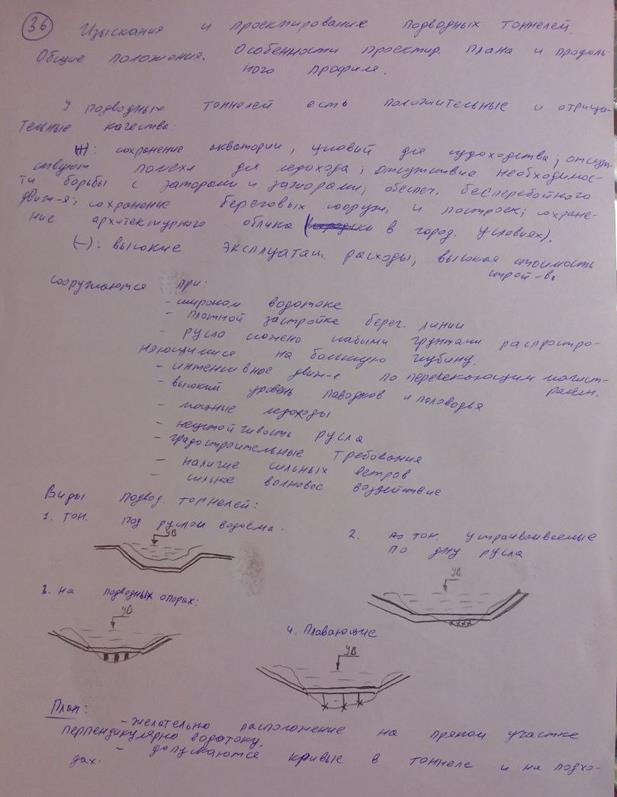 36 Изыскания и проектирование подводных тоннелей.
Общие положения. Особенности проектир. плана и продоль-
ного профиля.
У подводных тоннелей есть положительные и отрица-
тельные качества:
(+): сохранение акватории, условий для судоходства; отсут-
ствуют помехи для ледохода; отсутствие необходимос-
ти борьбы с заторами и зажорами; обеспеч. бесперебойного
движ-я; сохранение береговых сооруж. и построек; сохране-
ние архитектурного облика (в город. условиях).
(-): высокие эксплуатац. расходы, высокая стоимость
строй-ва
Сооружаются при:
- широком водотоке
- плотной застройке берег. линии
- русло сложено слабыми грунтами распростро-
няющимися на большую глубину.
- интенсивное движ-е по пересекающим магист-
ралям.
- высокий уровень паводков и половодья
- мощные ледоходы
- неустойчивость русла
- градостроительные требования
- наличие сильных ветров
- сильное волновое воздействие
Виды подвод. тоннелей:
1. тон. под руслом водоема.
УВ
2. тон. устраиваемые
по дну русла
УВ
3. на подводных опорах:
УВ
4. Плавающие
УВ
План:
- желательно расположение на прямом участке
перпендикулярно водотоку.
- допускаются кривые в тоннеле и на подхо-
дах.